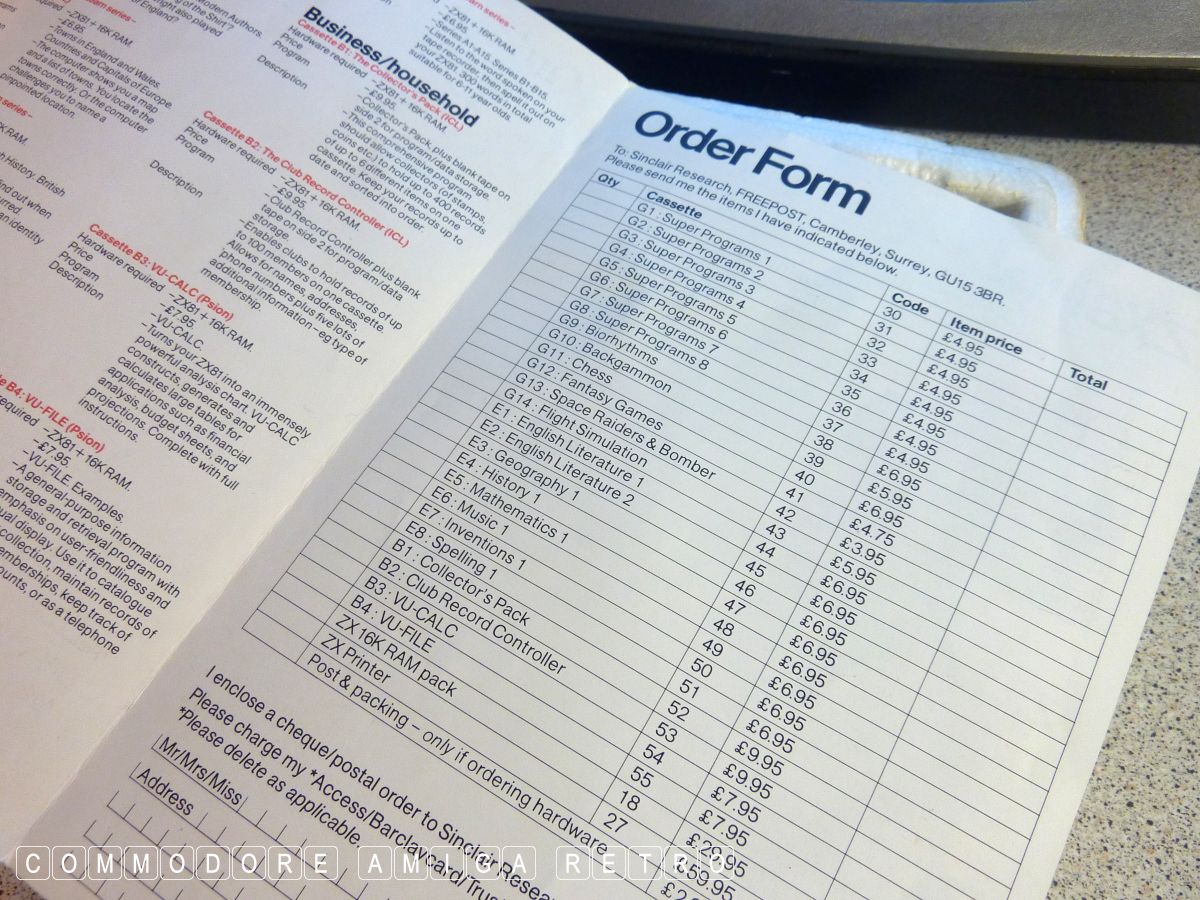 odern Authors.
g of the Shirt'?
ight also played
of England?
ZX81 + 16K RAM.
–£6.95
–Towns in England and Wales.
Countries and Capitals of Europe.
–The computer shows you a map
and a list of towns. You locate the
towns correctly. Or the computer
challenges you to name a
pinpointed location.
series –
KRAM.
h History. British
find out when
urred.
an identity
–ZX81 + 16K RAM.
–£6.95
–Series A1-A15. Series B1-B15.
–Listen to the word spoken on your
tape recorder, then spell it out on
your ZX81. 300 words in total
suitable for 6-11 year olds.
Business/household
Cassette B1: The Collector's Pack (ICL)
Hardware required –ZX81 + 16K RAM.
Price –£9.95
Program –Collector's Pack, plus blank tape on
side 2 for program/data storage.
Description –This comprehensive program
should allow collectors (of stamps,
coins etc.) to hold up to 400 records
of up to 6 different items on one
cassette. Keep your records up to
date and sorted into order.
Cassette B2: The Club Record Controller (ICL)
Hardware required –ZX81 + 16K RAM.
Price –£9.95
Program –Club Record Controller plus blank
tape on side 2 for program/data
storage.
Description –Enables clubs to hold records of up
to 100 members on one cassette.
Allows for names, addresses,
phone numbers plus five lots of
additional information – eg type of
membership.
Cassette B3: VU-CALC (Psion)
Hardware required –ZX81 + 16K RAM.
Price –£7.95
Program –VU-CALC.
Description –Turns your ZX81 into an immensely
powerful analysis chart. VU-CALC
constructs, generates and
calculates large tables for
applications such as financial
analysis, budget sheets, and
projections. Complete with full
instructions.
te B4: VU-FILE (Psion)
required –ZX81 + 16K RAM.
–£7.95.
–VU-FILE Examples.
–A general-purpose information
storage and retrieval program with
emphasis on user-friendliness and
ual display. Use it to catalogue
collection, maintain records of
emberships, keep track of
ounts, or as a telephone
Order Form
To: Sinclair Research, FREEPOST, Camberley, Surrey, GU15 3BR.
Please send me the items I have indicated below.
Qty Cassette Code Item price Total
G1 : Super Programs 1 30 £4.95
G2 : Super Programs 2 31 £4.95
G3 : Super Programs 3 32 £4.95
G4 : Super Programs 4 33 £4.95
G5 : Super Programs 5 34 £4.95
G6 : Super Programs 6 35 £4.95
G7 : Super Programs 7 36 £4.95
G8 : Super Programs 8 37 £4.95
G9 : Biorhythms 38 £6.95
G10 : Backgammon 39 £5.95
G11 : Chess 40 £6.95
G12 : Fantasy Games 41 £4.75
G13 : Space Raiders & Bomber 42 £3.95
G14 : Flight Simulation 43 £5.95
E1 : English Literature 1 44 £6.95
E2 : English Literature 2 45 £6.95
E3 : Geography 1 46 £6.95
E4 : History 1 47 £6.95
E5 : Mathematics 1 48 £6.95
E6 : Music 1 49 £6.95
E7 : Inventions 1 50 £6.95
E8 : Spelling 1 51 £6.95
B1 : Collector's Pack 52 £9.95
B2 : Club Record Controller 53 £9.95
B3 : VU-CALC 54 £7.95
B4 : VU-FILE 55 £7.95
ZX 16K RAM pack 18 £29.95
ZX Printer 27 £59.95
Post & packing – only if ordering hardware
I enclose a cheque/postal order to Sinclair Resear
Please charge my *Access/Barclaycard/Trus
*Please delete as applicable.
Mr/Mrs/Miss
Address
COMMODORE AMIGA RETRO